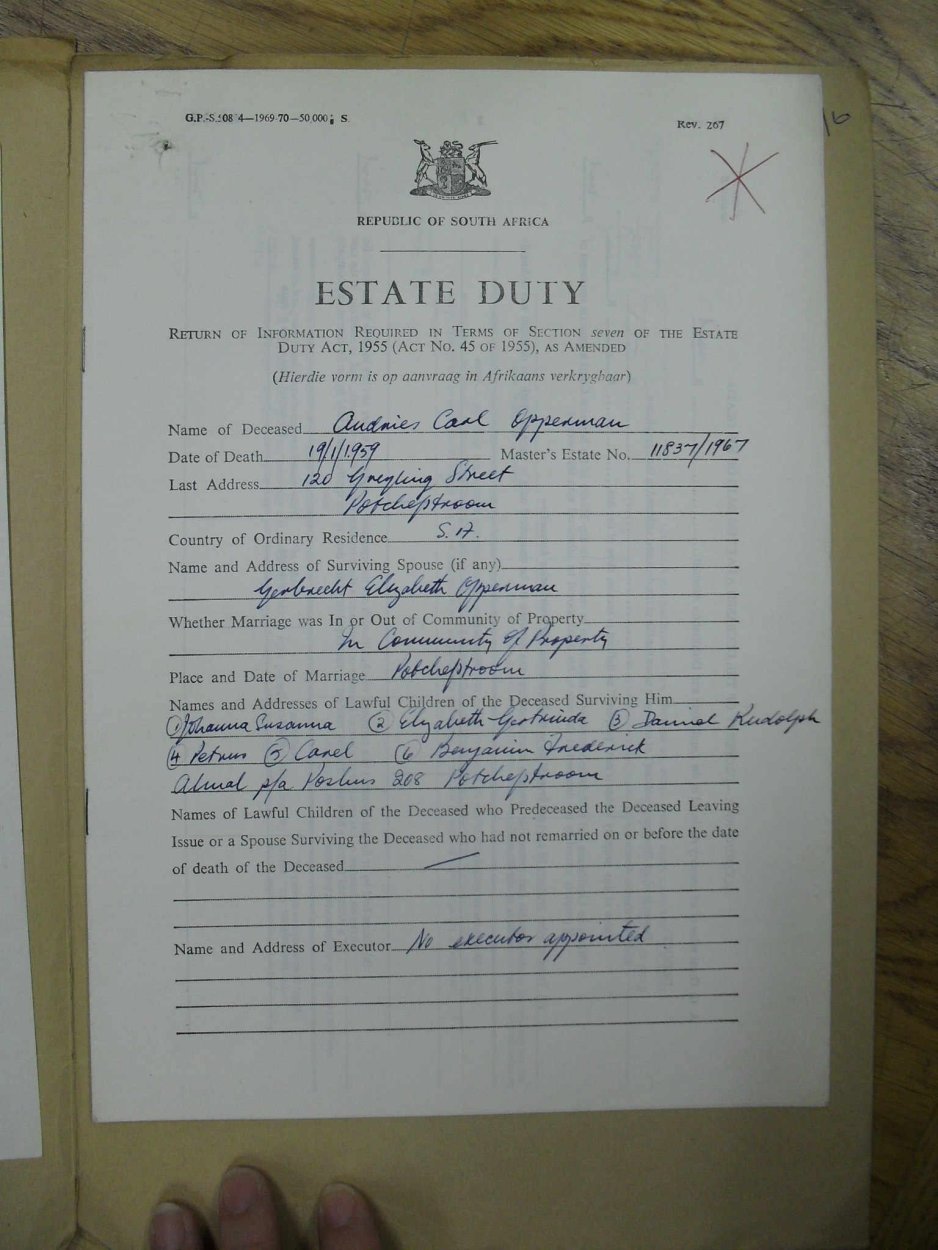 G.P.-S. 1969-70—50,000 S.
Rev. 267
16
REPUBLIC OF SOUTH AFRICA
ESTATE DUTY
RETURN OF INFORMATION REQUIRED IN TERMS OF SECTION seven OF THE ESTATE
DUTY ACT, 1955 (ACT NO. 45 OF 1955), AS AMENDED
(Hierdie vorm is op aanvraag in Afrikaans verkrygbaar)
Name of Deceased Andries Carl Opperman
Date of Death 19/1/1959 Master's Estate No. 11837/1967
Last Address 120 Greyling Street
Potchefstroom
Country of Ordinary Residence S.A.
Name and Address of Surviving Spouse (if any)
Gerbrecht Elizabeth Opperman
Whether Marriage was In or Out of Community of Property
In Community of Property
Place and Date of Marriage Potchefstroom
Names and Addresses of Lawful Children of the Deceased Surviving Him
① Johanna Susanna ② Elizabeth Gertruida ③ Daniel Rudolph
④ Petrus ⑤ Carel ⑥ Benjamin Frederick
Almal p/a Posbus 208 Potchefstroom
Names of Lawful Children of the Deceased who Predeceased the Deceased Leaving
Issue or a Spouse Surviving the Deceased who had not remarried on or before the date
of death of the Deceased
Name and Address of Executor No executor appointed